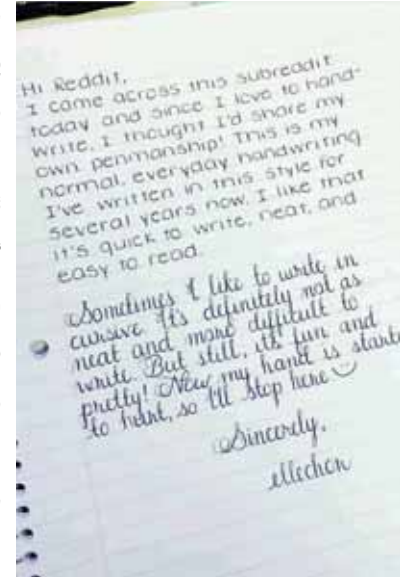 Hi Reddit,
I came across this subreddit
today and since I love to hand-
write, I thought I'd share my
own penmanship! This is my
normal, everyday handwriting
I've written in this style for
several years now. I like that
it's quick to write, neat, and
easy to read.
Sometimes I like to write in
cursive. It's definitely not as
neat and more difficult to
write. But still, it's fun and
pretty! Now my hand is starte
to hurt, so I'll stop here
Sincerely,
ellechon